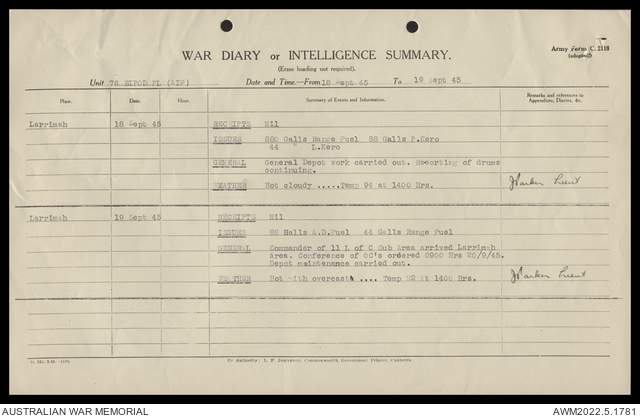 Army Form C. 2118
(adapted)
WAR DIARY or INTELLIGENCE SUMMARY.
(Erase heading not required).
Unit 76 BIPOD PL (AIF) Date and Time.—From 18 Sept 45 To 19 Sept 45
Place. Date. Hour. Summary of Events and Information. Remarks and references to Appendices, Diaries, &c.
Larrimah 18 Sept 45 RECEIPTS Nil
ISSUES 880 Galls Range Fuel 88 Galls P.Kero
44 " L.Kero
GENERAL General Depot work carried out. Resorting of drums
continuing.
WEATHER Hot cloudy .....Temp 94 at 1400 Hrs. Lieut
Larrimah 19 Sept 45 RECEIPTS Nil
ISSUES 88 Galls A.D.Fuel 44 Galls Range Fuel
GENERAL Commander of 11 L of C Sub Area arrived Larrimah
Area. Conference of OC's ordered 0900 Hrs 20/9/45.
Depot maintenance carried out.
WEATHER Hot with overcast .... Temp 92 at 1400 Hrs. Lieut
By Authority: L. F. Johnston, Commonwealth Government Printer, Canberra.
AUSTRALIAN WAR MEMORIAL AWM2022.5.1781